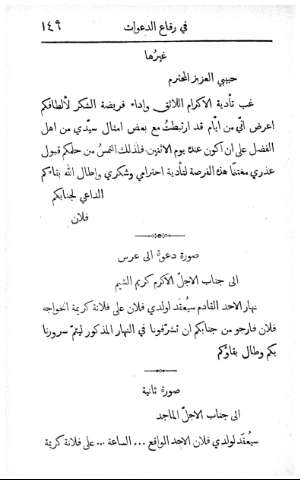 في رقاع الدعوات ١٤٩
غيرُها
حبيبي العزيز المحترم
غب تأدية الاكرام اللائق واداء فريضة الشكر لألطافكم
اعرض انّي من ايّام قد ارتبطتُ مع بعض امثال سيّدي من اهل
الفضل على ان اكون عنده يوم الاثنين فلذلك ألتمسُ من حلمكم قبول
عذري مغتنماً هذه الفرصة لتأدية احترامي وشكري واطال الله بقاءكم
الداعي لجنابكم
فلان
صورة دعوة الى عرس
الى جناب الاجلّ الاكرم كريم الشيم
نهار الاحد القادم سيُعقَد لولدي فلان على فلانة كريمة الخواجه
فلان فارجو من جنابكم ان تشرّفونا في النهار المذكور ليتمّ سرورنا
بكم وطال بقاؤكم
صورة ثانية
الى جناب الاجلّ الماجد
سيُعقَد لولدي فلان الاحد الواقع ... الساعة ... على فلانة كريمة